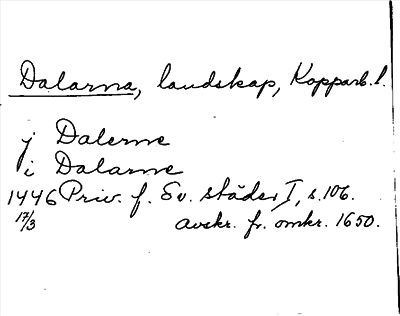 Dalarna, landskap, Kopparb. l.
j Dalerne
i Dalarne
1446 Priv. f. Sv. städer I, s. 106.
17/3 avskr. fr. omkr. 1650.